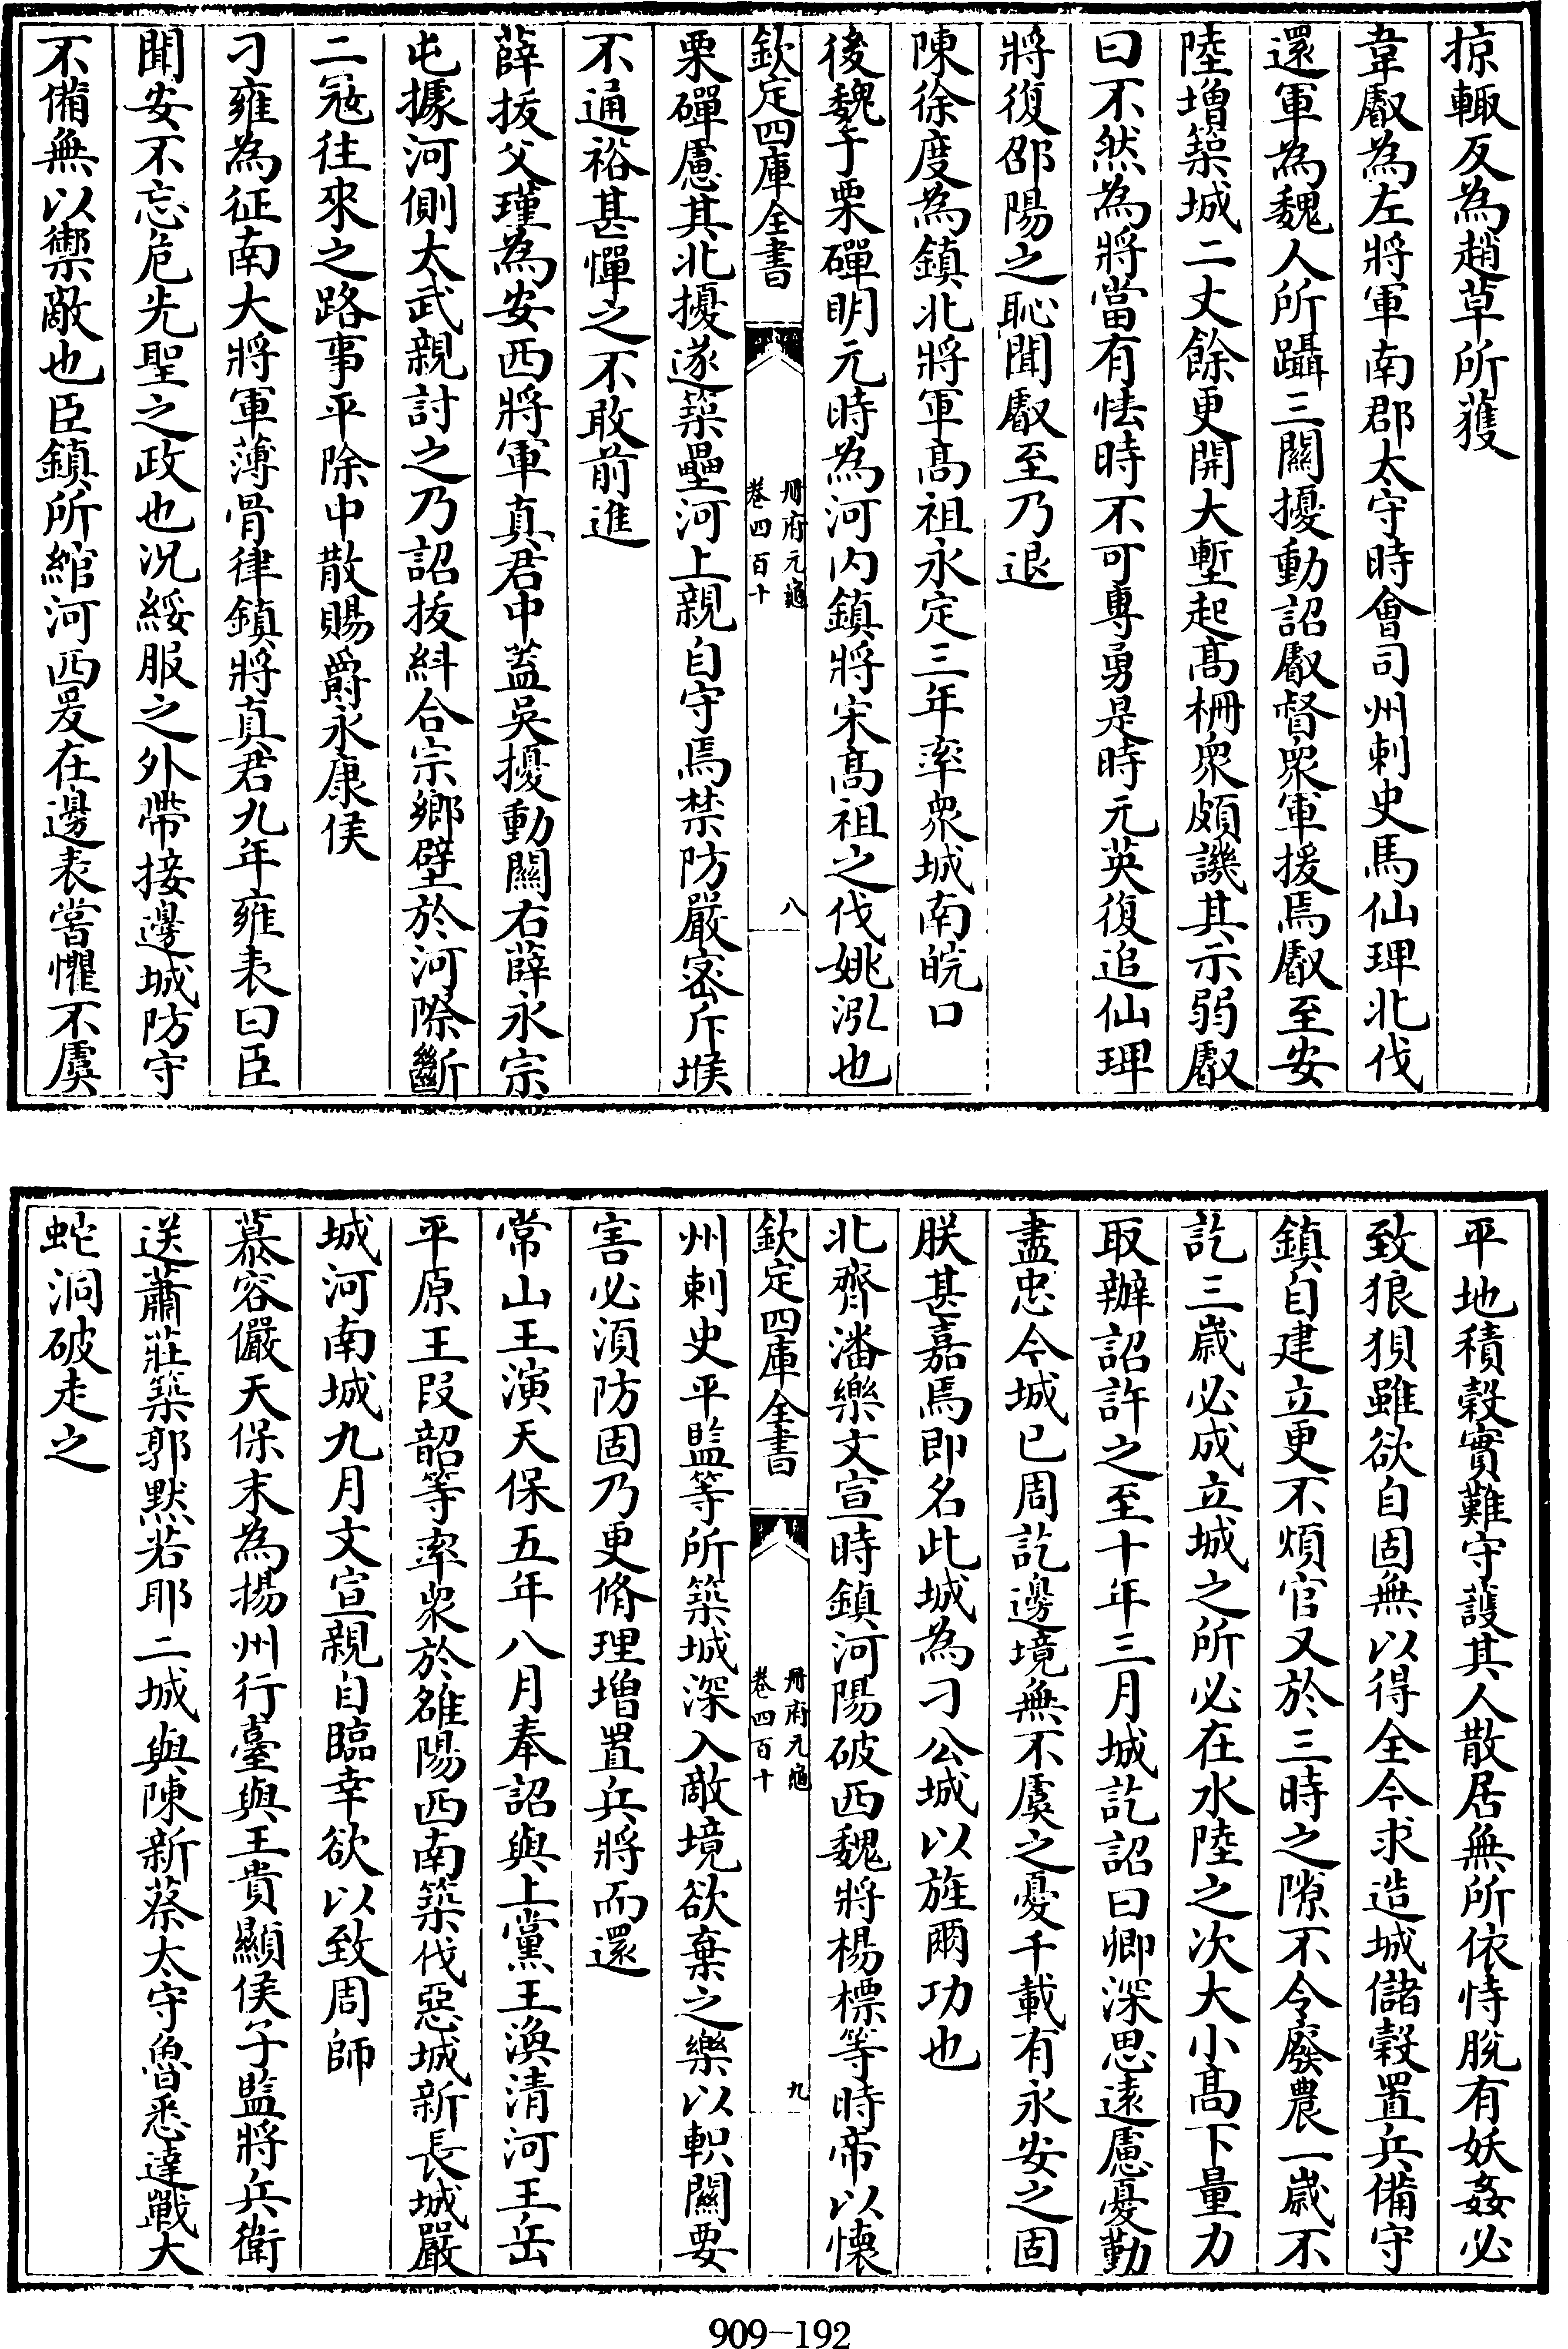 掠輙反為趙草所獲
韋叡為左將軍南郡太守時會司州刺史馬仙琕北伐
還軍為魏人所躡三關擾動詔叡督衆軍援焉叡至安
陸增築城二丈餘更開大塹起髙栅衆頗譏其示弱叡
曰不然為將當有怯時不可專勇是時元英復追仙琕
將復邵陽之恥聞叡至乃退
陳徐度為鎮北將軍髙祖永定三年率衆城南皖口
後魏于栗磾明元時為河内鎮將宋髙祖之伐姚泓也
欽定四庫全書
冊府元龜
卷四百十
八
栗磾慮其北擾遂築壘河上親自守焉禁防嚴密斥堠
不通裕甚憚之不敢前進
薛拔父瑾為安西將軍真君中蓋吳擾動關右薛永宗
屯據河側大武親討之乃詔拔糾合宗鄉壁於河際斷
二冦往來之路事平除中散賜爵永康侯
刁雍為征南大將軍薄骨律鎮將真君九年雍表曰臣
聞安不忘危先聖之政也况綏服之外帶接邊城防守
不備無以禦敵也臣鎮所綰河西爰在邊表嘗懼不虞
平地積穀實難守護其人散居無所依恃脫有妖姦必
致狼狽雖欲自固無以得全今求造城儲穀置兵備守
鎮自建立更不煩官又於三時之隙不令廢農一歲不
訖三歲必成立城之所必在水陸之次大小髙下量力
取辦詔許之至十年三月城訖詔曰卿深思遠慮憂勤
盡忠今城已周訖邊境無不虞之憂千載有永安之固
朕甚嘉焉即名此城為刁公城以旌爾功也
北齊潘樂文宣時鎮河陽破西魏將楊標等時帝以懷
欽定四庫全書
冊府元龜
卷四百十
九
州刺史平監等所築城深入敵境欲棄之樂以軹關要
害必須防固乃更脩理增置兵將而還
常山王演天保五年八月奉詔與上黨王渙清河王岳
平原王叚韶等率衆於雒陽西南築伐惡城新長城嚴
城河南城九月文宣親自臨幸欲以致周師
慕容儼天保末為揚州行臺與王貴顯侯子監將兵衛
送蕭莊築郭黙若耶二城與陳新蔡太守魯悉達戰大
蛇洞破走之
909-192